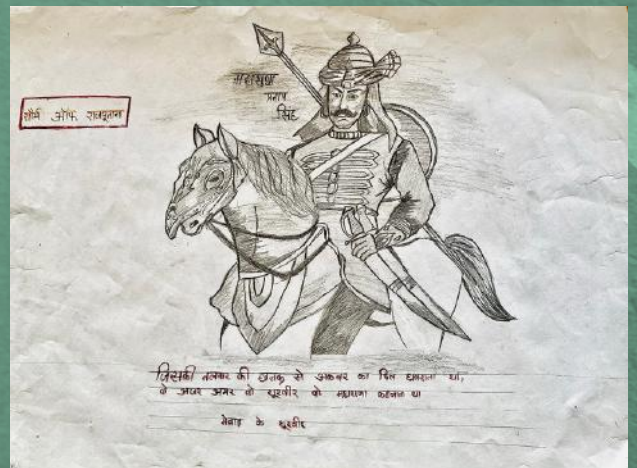 शौर्य ऑफ राजपूताना
महाराणा
प्रताप
सिंह
जिसकी तलवार की छनक से अकबर का दिल घबराता था,
वो अजर अमर वो शूरवीर वो महाराणा कहलाता था
मेवाड़ के शूरवीर